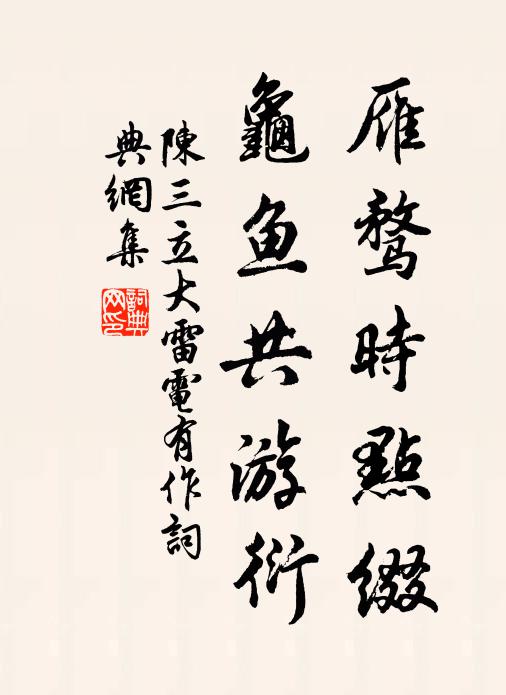 雁鹜時點綴
龜鱼共游衍
陳三立大雷電有作詞
典網集
詞典網印